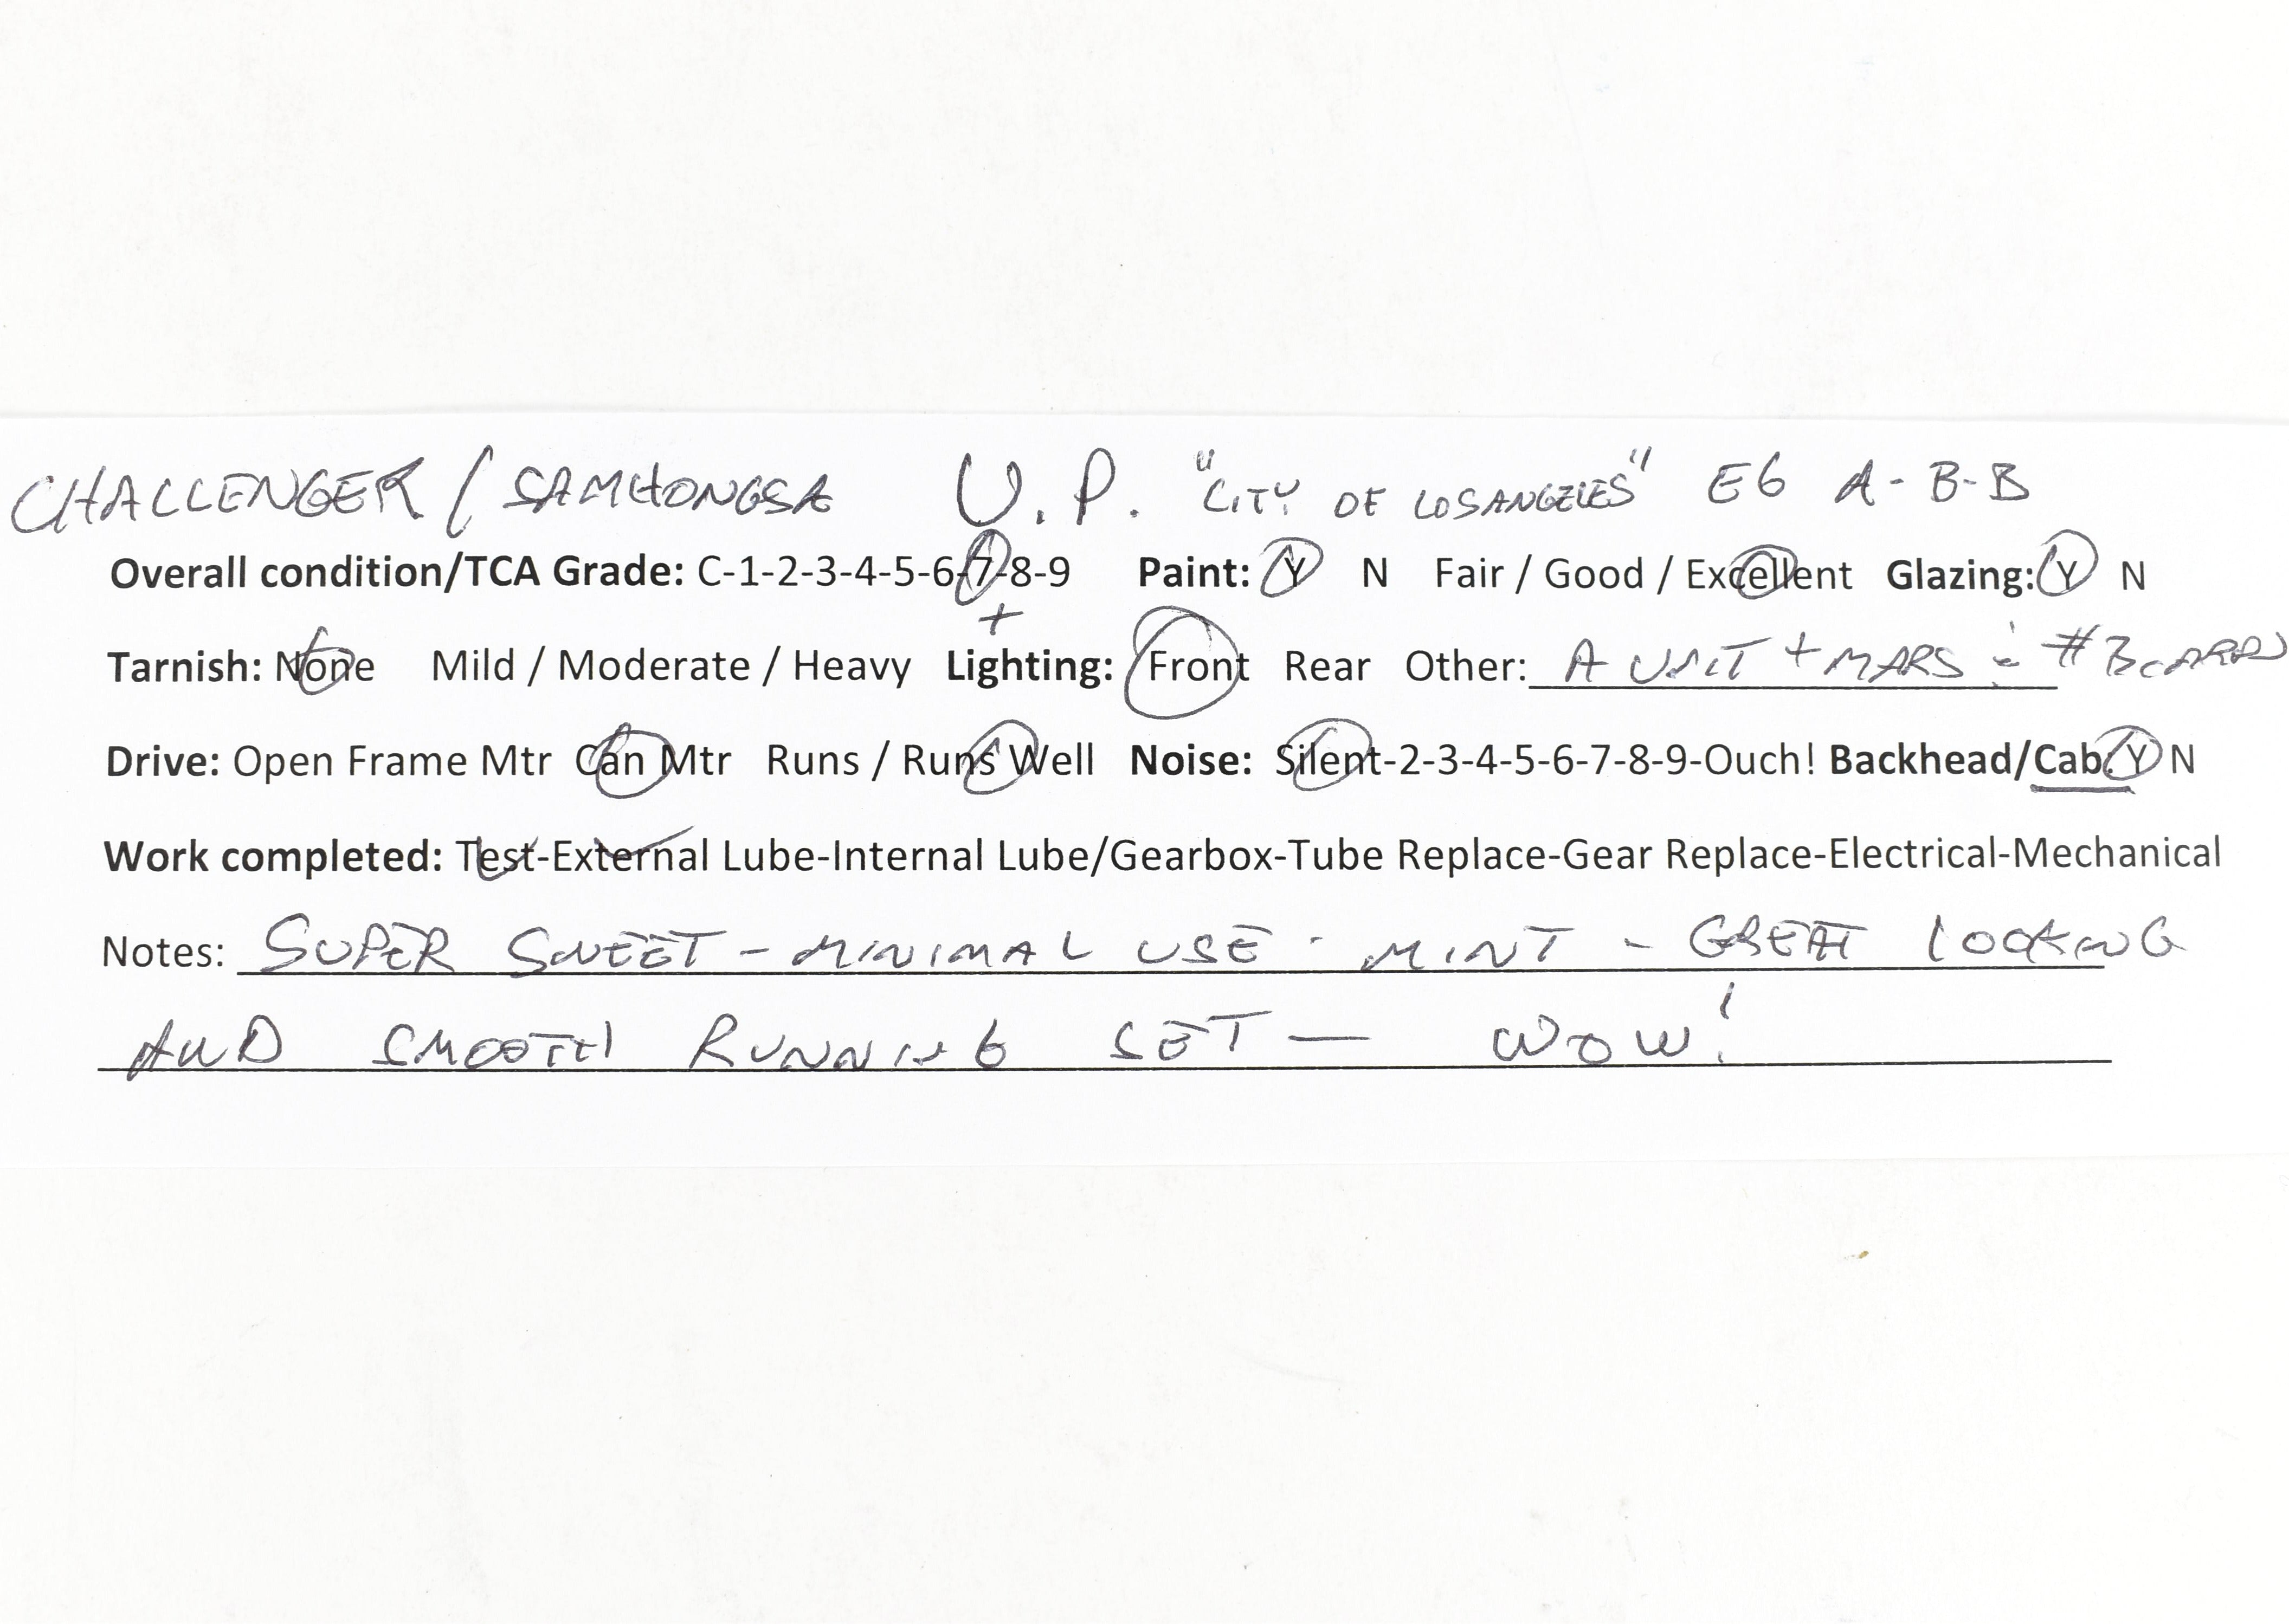 CHALLENGER / SAMHONGSA U.P. "CITY OF LOS ANGELES" E6 A-B-B
Overall condition/TCA Grade: C-1-2-3-4-5-6-7-8-9 Paint: Y N Fair / Good / Excellent Glazing: Y N
+
Tarnish: None Mild / Moderate / Heavy Lighting: Front Rear Other: A UNIT + MARS
Drive: Open Frame Mtr Can Mtr Runs / Runs Well Noise: Silent-2-3-4-5-6-7-8-9-Ouch! Backhead/Cab: Y N
Work completed: Test-External Lube-Internal Lube/Gearbox-Tube Replace-Gear Replace-Electrical-Mechanical
Notes: SUPER SWEET - MINIMAL USE - MINT - GREAT LOOKING
AND SMOOTH RUNNING SET — WOW!